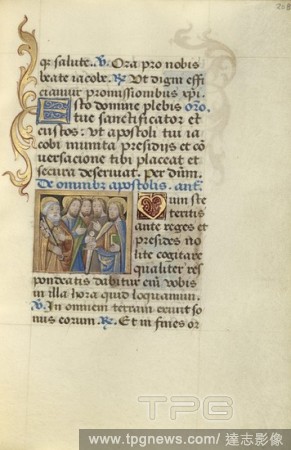 qꝫ salute. V. Ora pro nobis
beate iacobe. R. Ut digni effi
ciamur promissionibus xpi.
Esto domine plebis oro.
tue sanctificator et
custos: ut apostoli tui ia
cobi munita presidiis et co
nversacione tibi placeat et
secura deserviat. Per dum.
De omnibus apostolis. ant.
Dum ste
teritis
ante reges et
presides no
lite cogitare
qualiter res
pondeatis dabitur em vobis
in illa hora quid loquamini.
V. In omnem terram exivit so
nus eorum. R. Et in fines or
TPG
www.tpgnews.com/達志影像